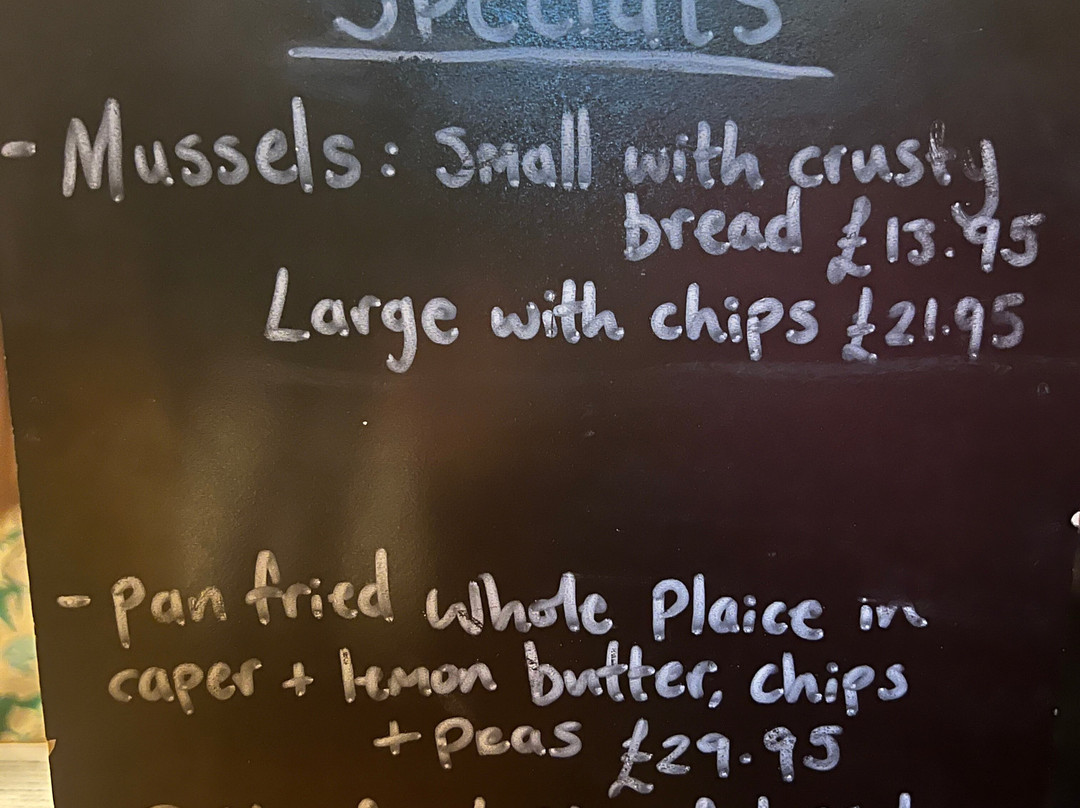 Specials
- Mussels: Small with crusty
bread £13.95
Large with chips £21.95
- Pan fried whole Plaice in
caper + lemon butter, chips
+ Peas £29.95